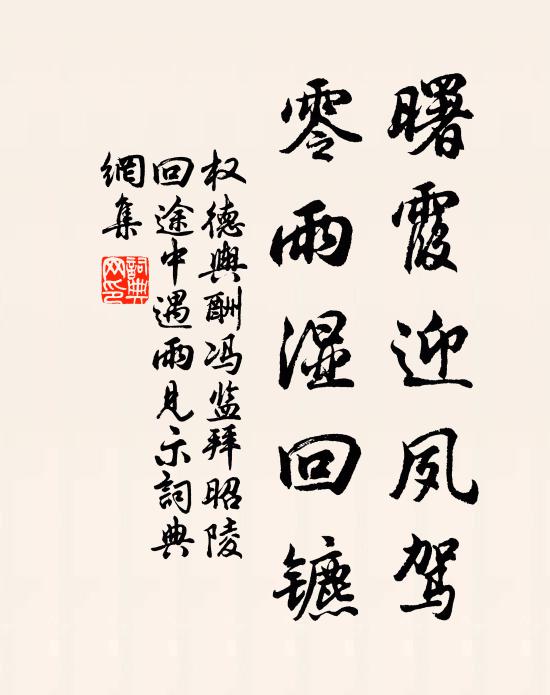 曙霞迎夙驾
零雨湿回镳
权德舆酬冯监拜昭陵
回途中遇雨见示詞典
網集
詞典
网印